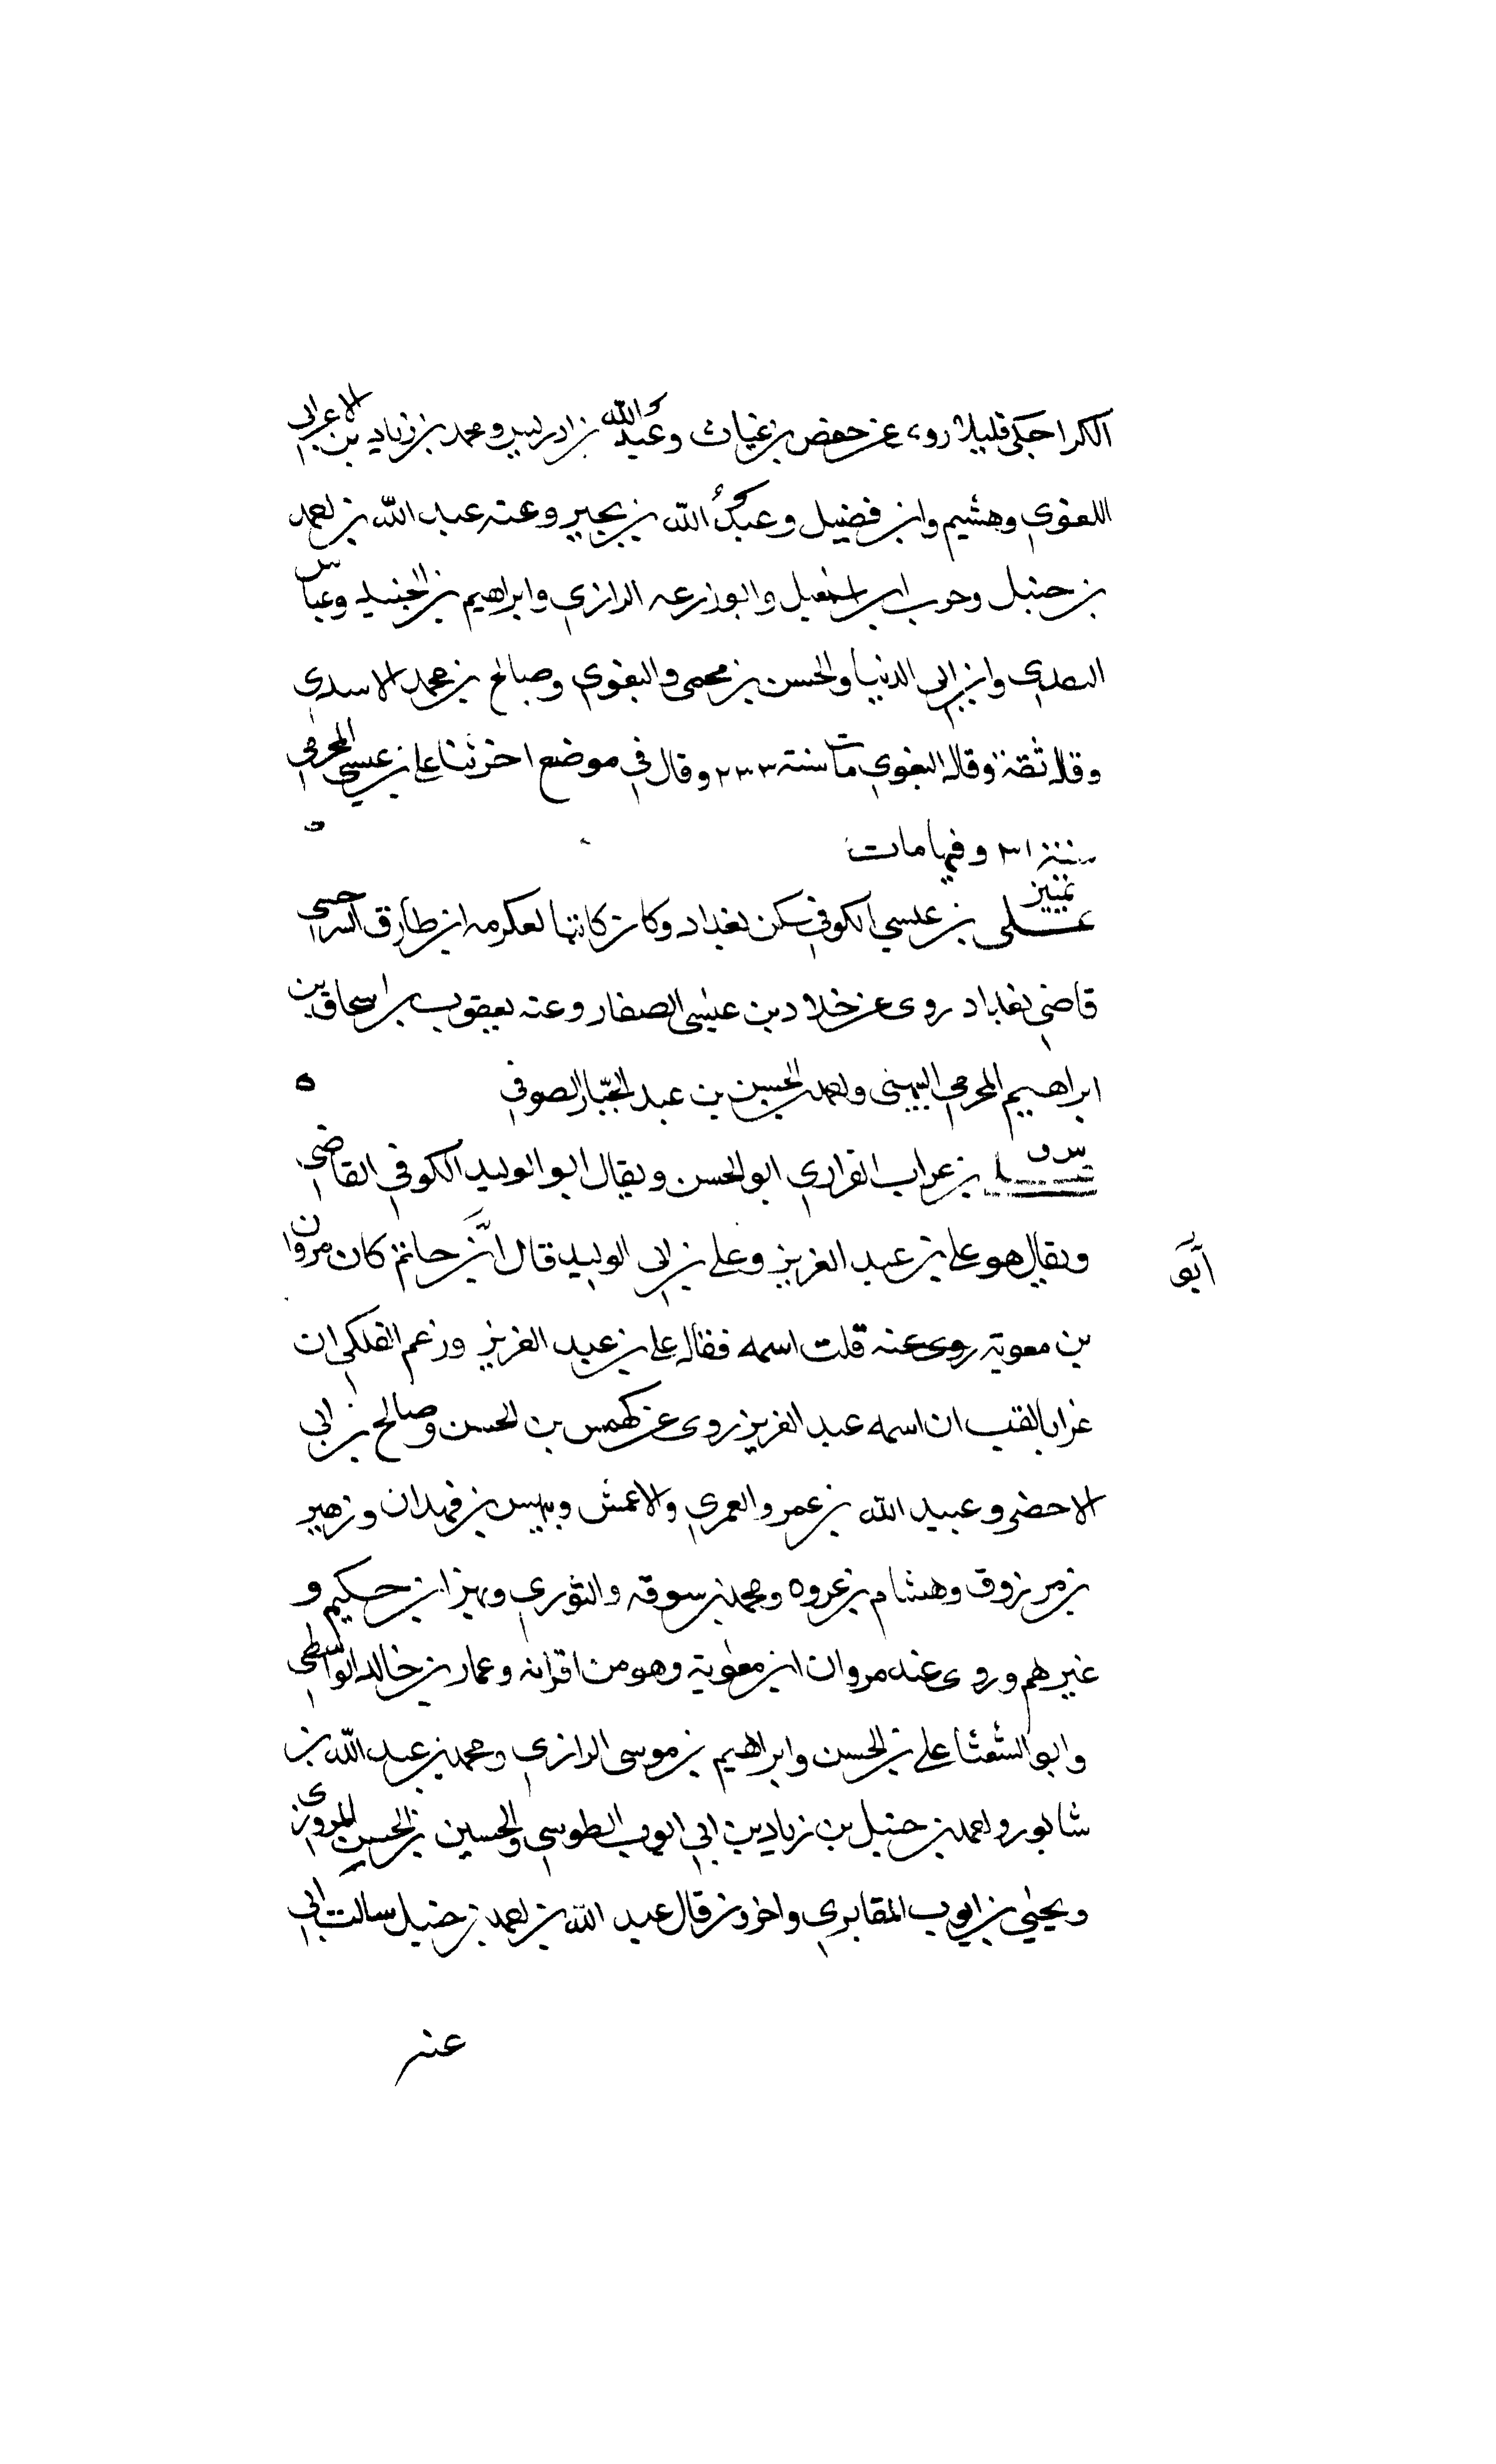 الكراجكي قليلا روى عن حفص بن غياث وعبد الله بن ادريس ومحمد بن زياد بن الاعرابي
اللغوي وهشيم وابن فضيل وعبد الله بن بجير وعنه عبد الله بن احمد
بن حنبل وحرب ابن اسمعيل وابو زرعه الرازي وابراهيم بن الجنيد وعباس
وابن ابي الدنيا والحسن بن محمى والبغوي وصالح بن محمد الاسدي
وقال ثقة وقال البغوي مات سنة ٢٣٣ وقال في موضع اخر ثنا علي بن عيسى المخرمي
سنة ٣١ وفيها مات
تمييز
علي بن عيسى الكوفي سكن بغداد وكان كاتبا لعكرمه ابن طارق السرحسي
قاضي بغداد روى عن خلاد بن عيسى الصفار وعنه يعقوب بن اسحاق بن
ابراهيم المخرمي البيهني واحمد بن الحسين بن عبد الجبار الصوفي ه
س ق
علي بن غراب الفزاري ابو الحسن ويقال ابو الوليد الكوفي القاضي
ويقال هو علي بن عبد العزيز وعلي بن ابي الوليد قال ابن حاتم كان مروان
ابو
بن معوية روى عنه قلت اسمه فقال علي بن عبد العزيز وزعم الفلكي ان
غرابا لقب ان اسمه عبد العزيز روى عن كهمس بن الحسن وصالح بن ابي
الاخضر وعبيد الله بن عمر والعمري والاعمش وبيهس بن فهدان وزهير
بن مرزوق وهشام بن عروه ومحمد بن سوقه والثوري وبهز ابن حكيم و
غيرهم وروى عنه مروان ابن معوية وهو من اقرانه وعمار بن خالد الواسطي
وابو الشعثا علي بن الحسن وابراهيم بن موسى الرازي ومحمد بن عبد الله بن
شابور واحمد بن حنبل بن زياد بن ابي ايوب الطوسي والحسين بن الحسن المروزي
ويحيى بن ايوب المقابري واخرون قال عبد الله بن احمد بن حنبل سالت ابي
عنه